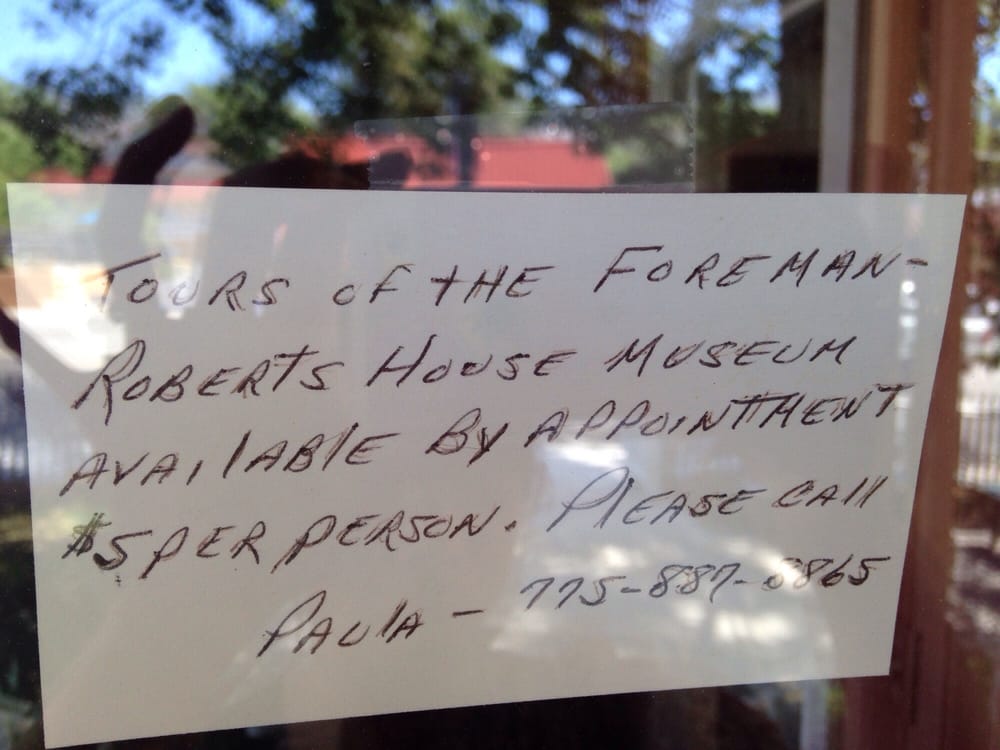 TOURS OF THE FOREMAN-
ROBERTS HOUSE MUSEUM
AVAILABLE BY APPOINTMENT
$5 PER PERSON. PLEASE CALL
PAULA - 775-887-8865